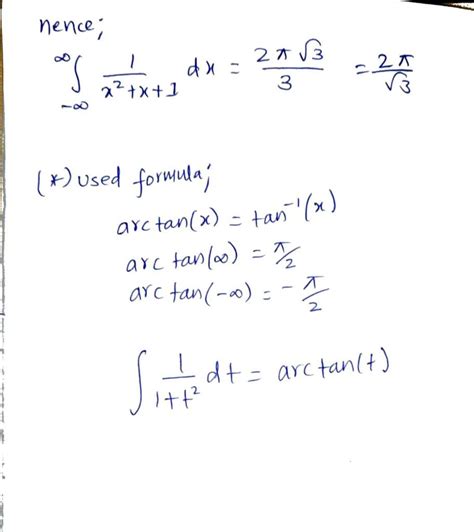 hence;
∞∫-∞ 1/(x²+x+1) dx = 2π√3/3 = 2π/√3
(*) used formula;
arctan(x) = tan⁻¹(x)
arc tan(∞) = π/2
arc tan(-∞) = -π/2
∫ 1/(1+t²) dt = arctan(t)